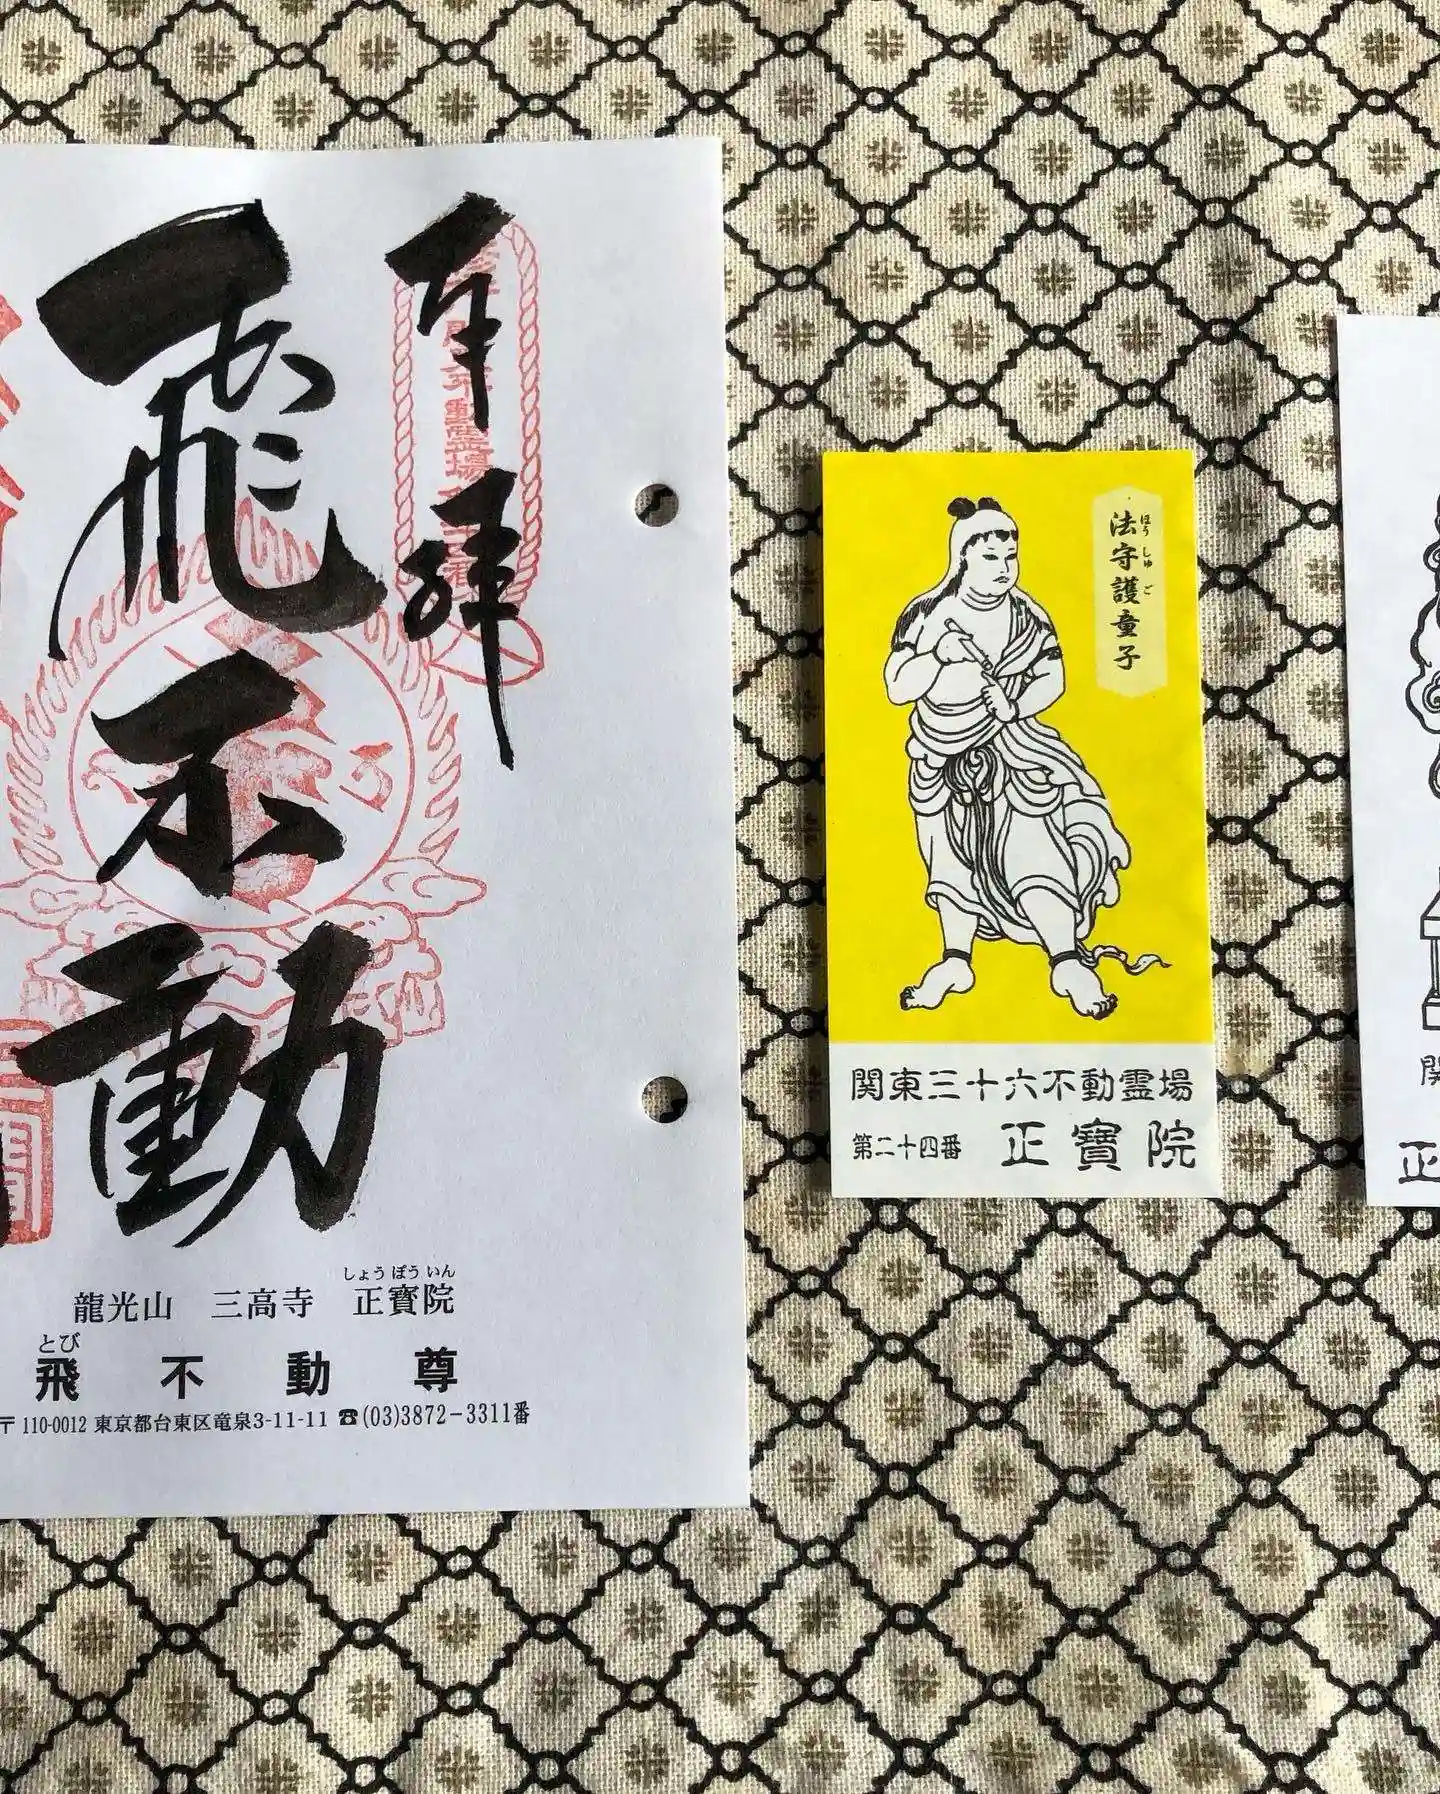 奉拝
飛不動
しょうぼういん
龍光山 三高寺 正寳院
とび
飛不動尊
〒110-0012 東京都台東区竜泉3-11-11 ☎(03)3872-3311番
法守護童子
ほうしゅご
関東三十六不動霊場
第二十四番 正寳院
関
正